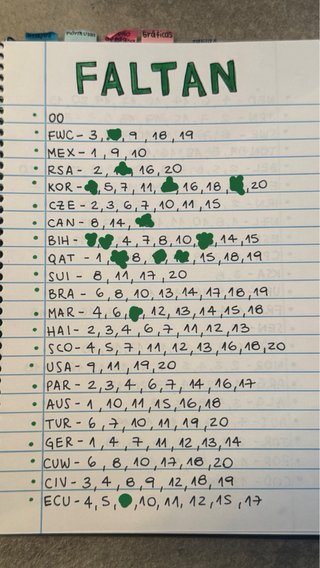 Gráficas
FALTAN
00
FWC - 3, 9, 18, 19
MEX - 1, 9, 10
RSA - 2, 16, 20
KOR - 5, 7, 11, 16, 18, 20
CZE - 2, 3, 6, 7, 10, 11, 15
CAN - 8, 14,
BIH - 4, 7, 8, 10, 14, 15
QAT - 1, 8, 15, 18, 19
SUI - 8, 11, 17, 20
BRA - 6, 8, 10, 13, 14, 17, 18, 19
MAR - 4, 6, 12, 13, 14, 15, 18
HAI - 2, 3, 4, 6, 7, 11, 12, 13
SCO - 4, 5, 7, 11, 12, 13, 16, 18, 20
USA - 9, 11, 19, 20
PAR - 2, 3, 4, 6, 7, 14, 16, 17
AUS - 1, 10, 11, 15, 16, 18
TUR - 6, 7, 10, 11, 19, 20
GER - 1, 4, 7, 11, 12, 13, 14
CUW - 6, 8, 10, 17, 18, 20
CIV - 3, 4, 8, 9, 12, 18, 19
ECU - 4, 5, 10, 11, 12, 15, 17